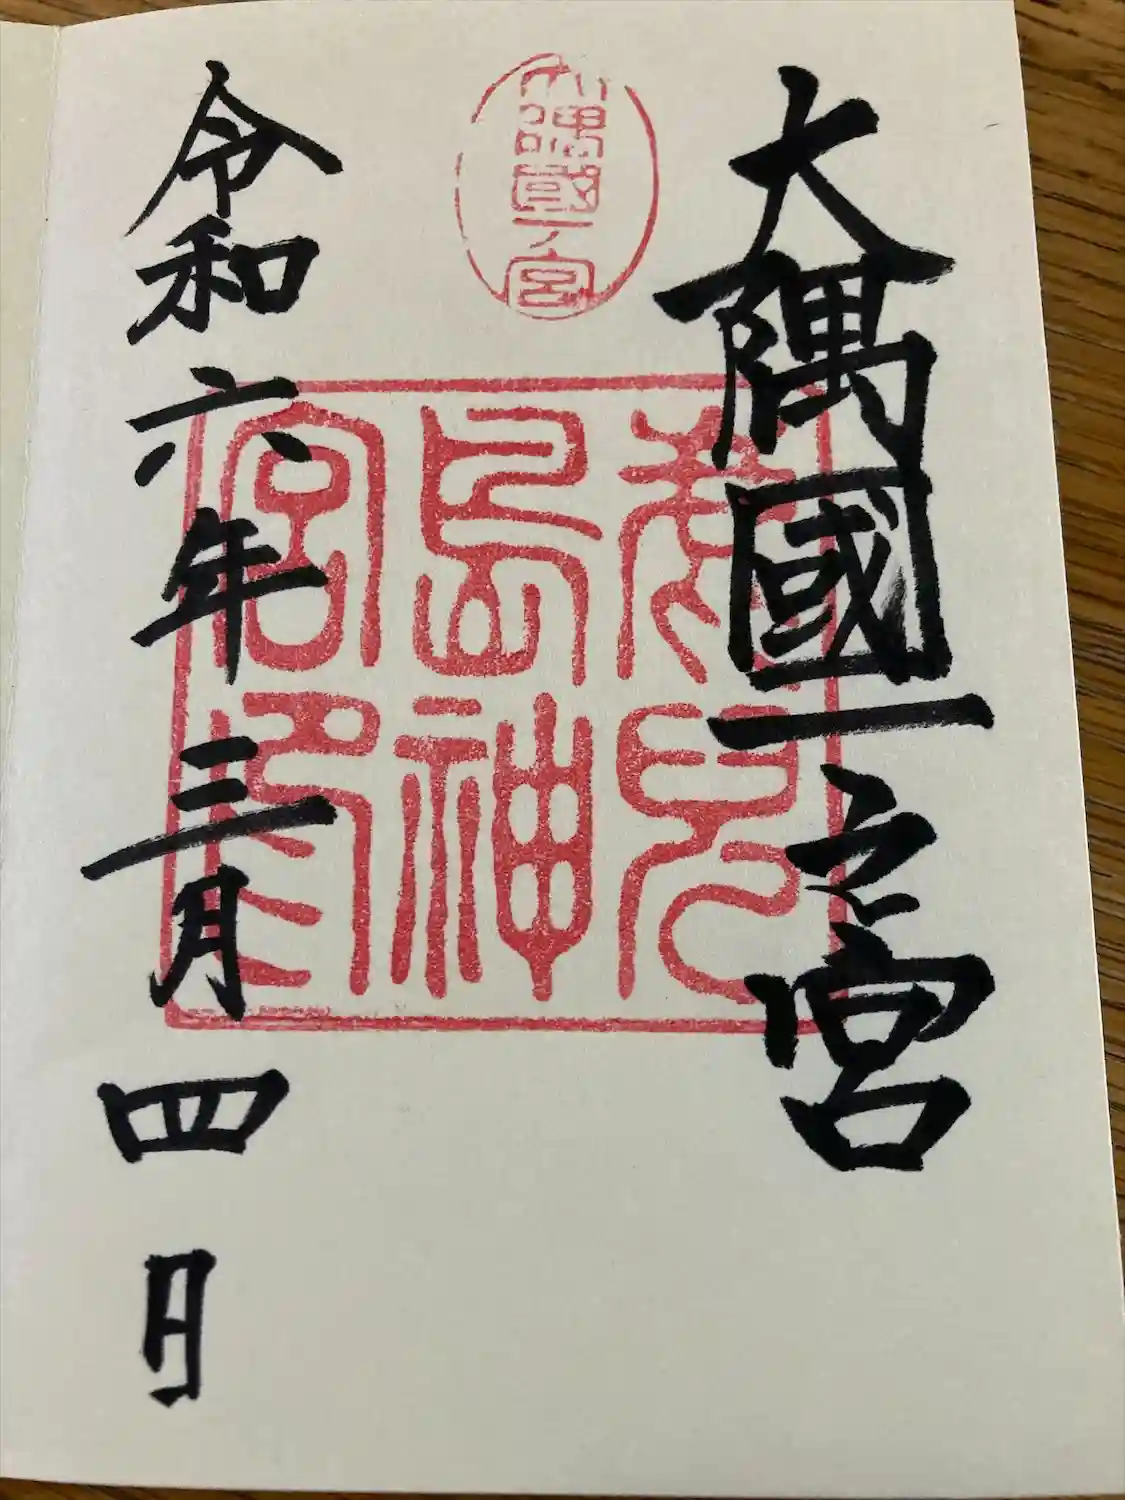 大隅國一之宮
大隅國一ノ宮
鹿兒
島神
宮印
令和六年三月四日